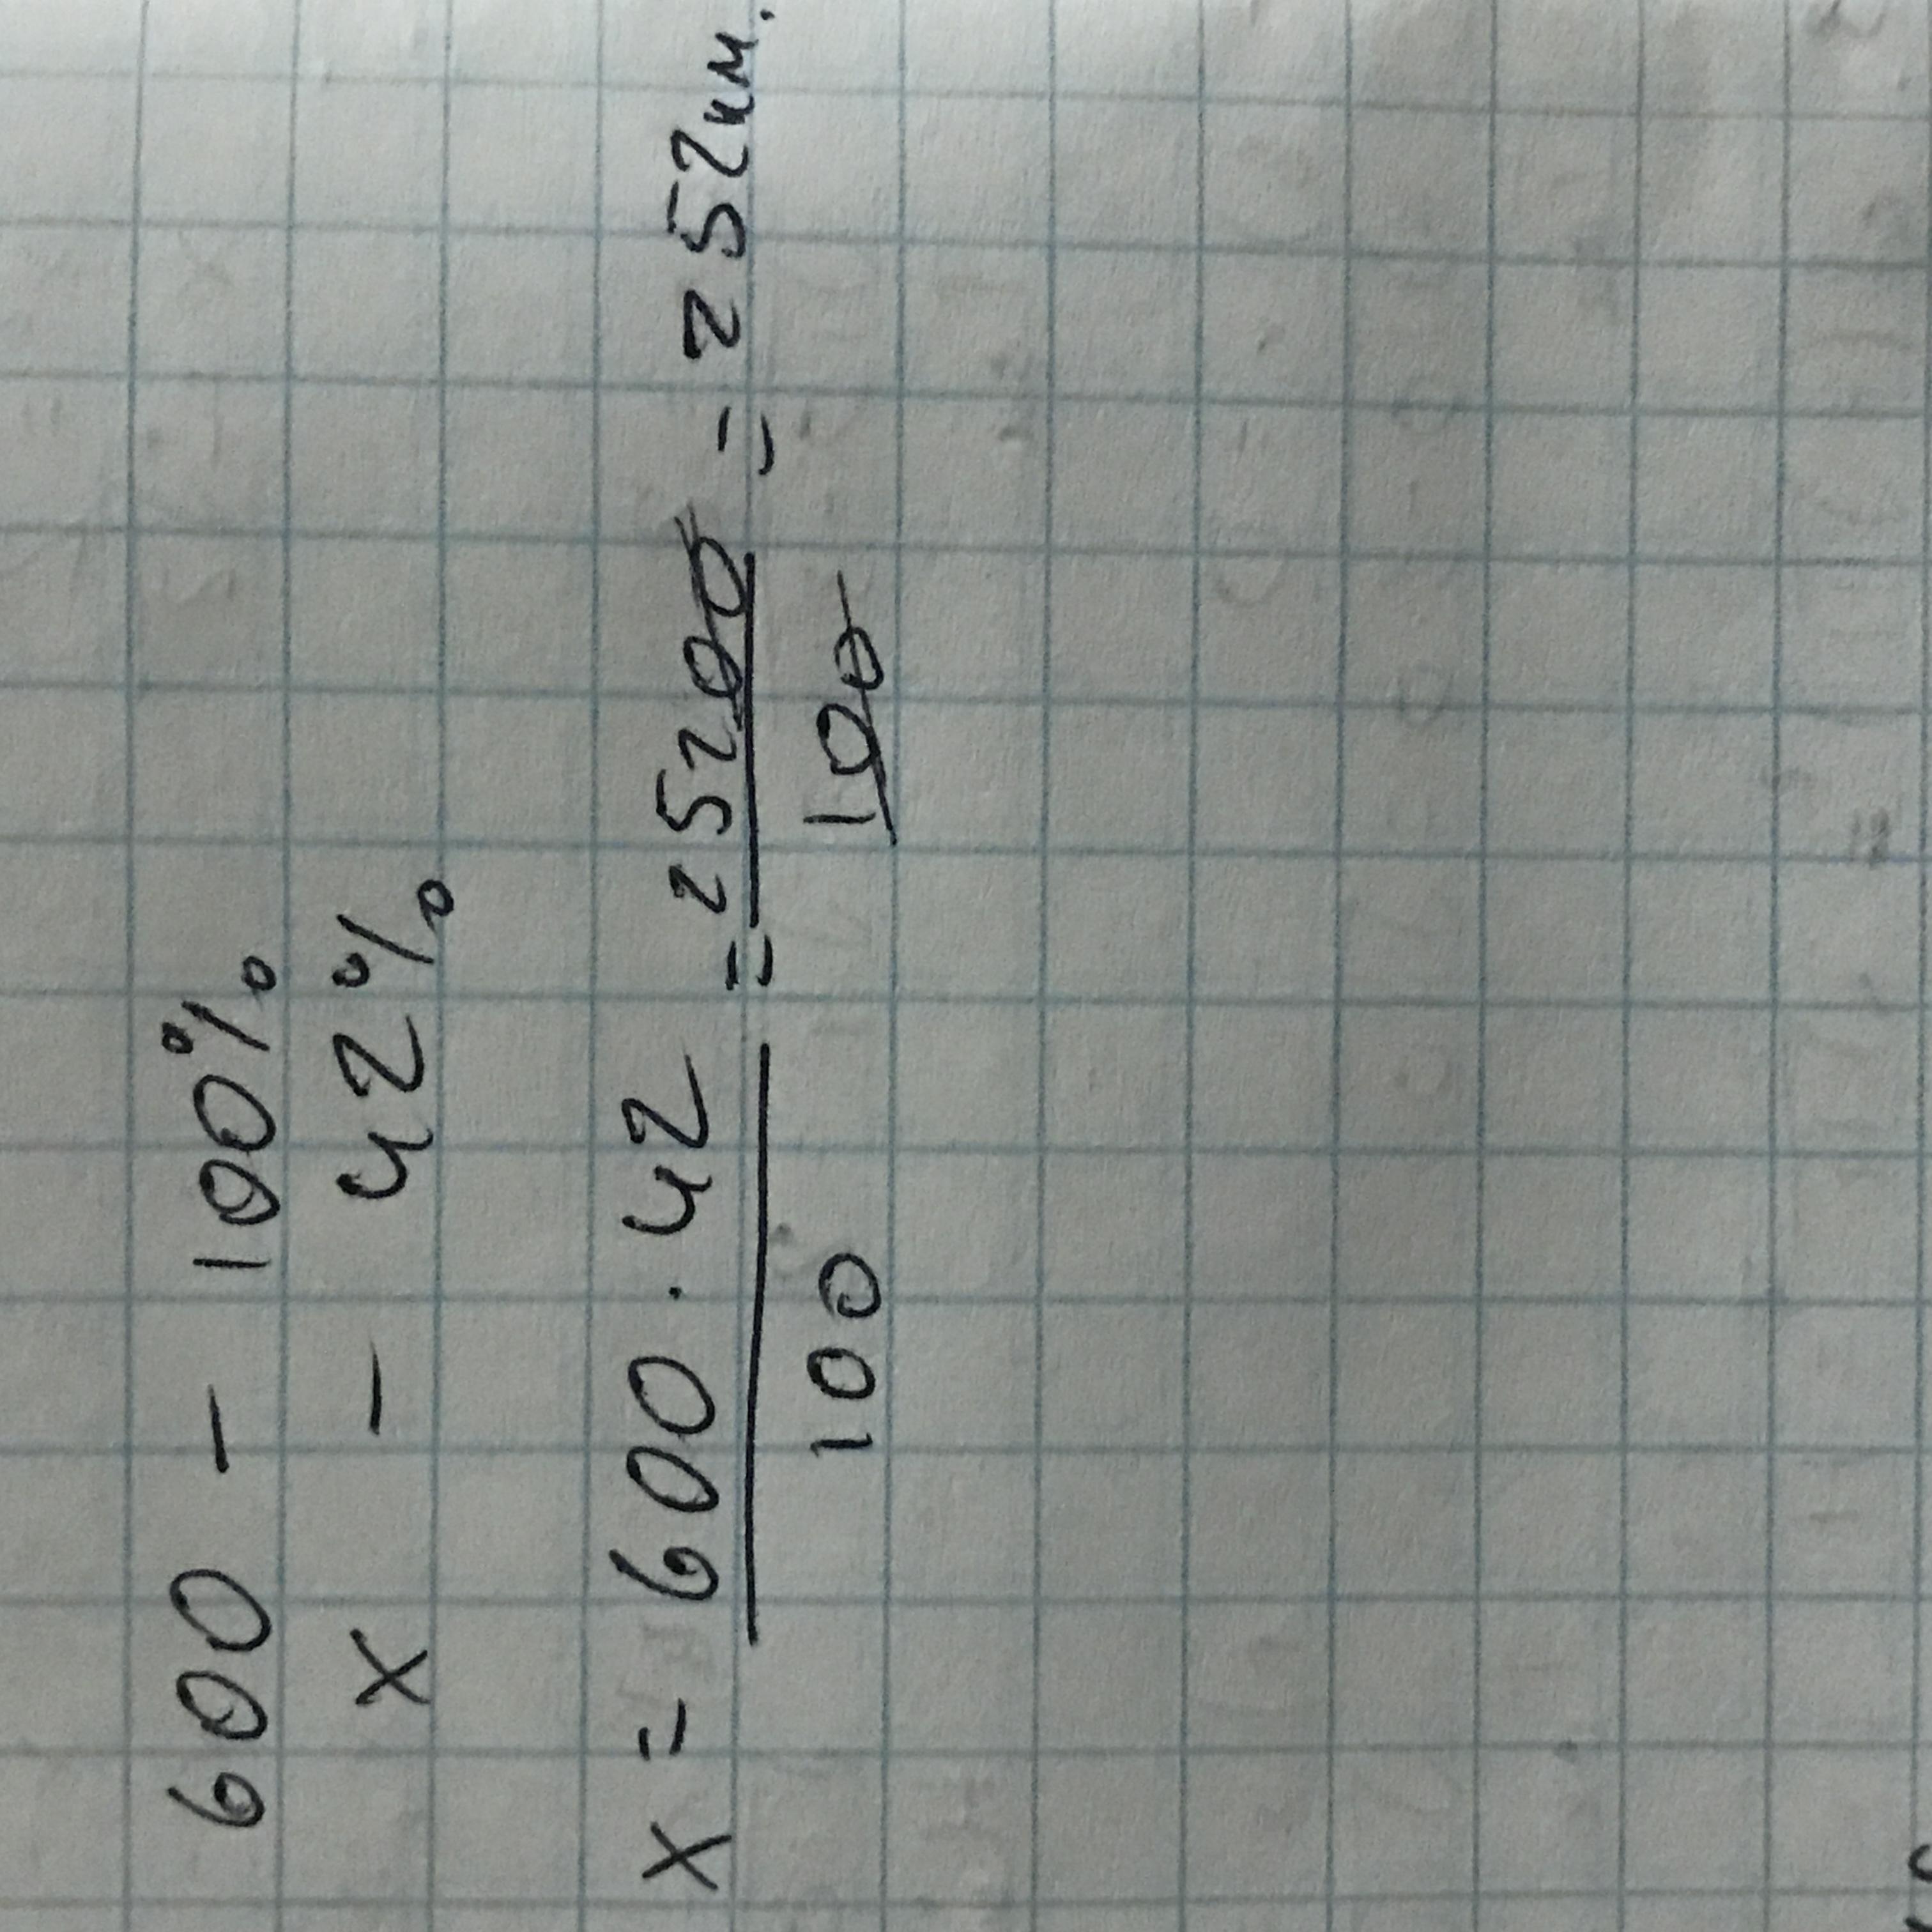 600 - 100%
x - 42%
x = 600 · 42 / 100 = 25200 / 100 = 252 км.